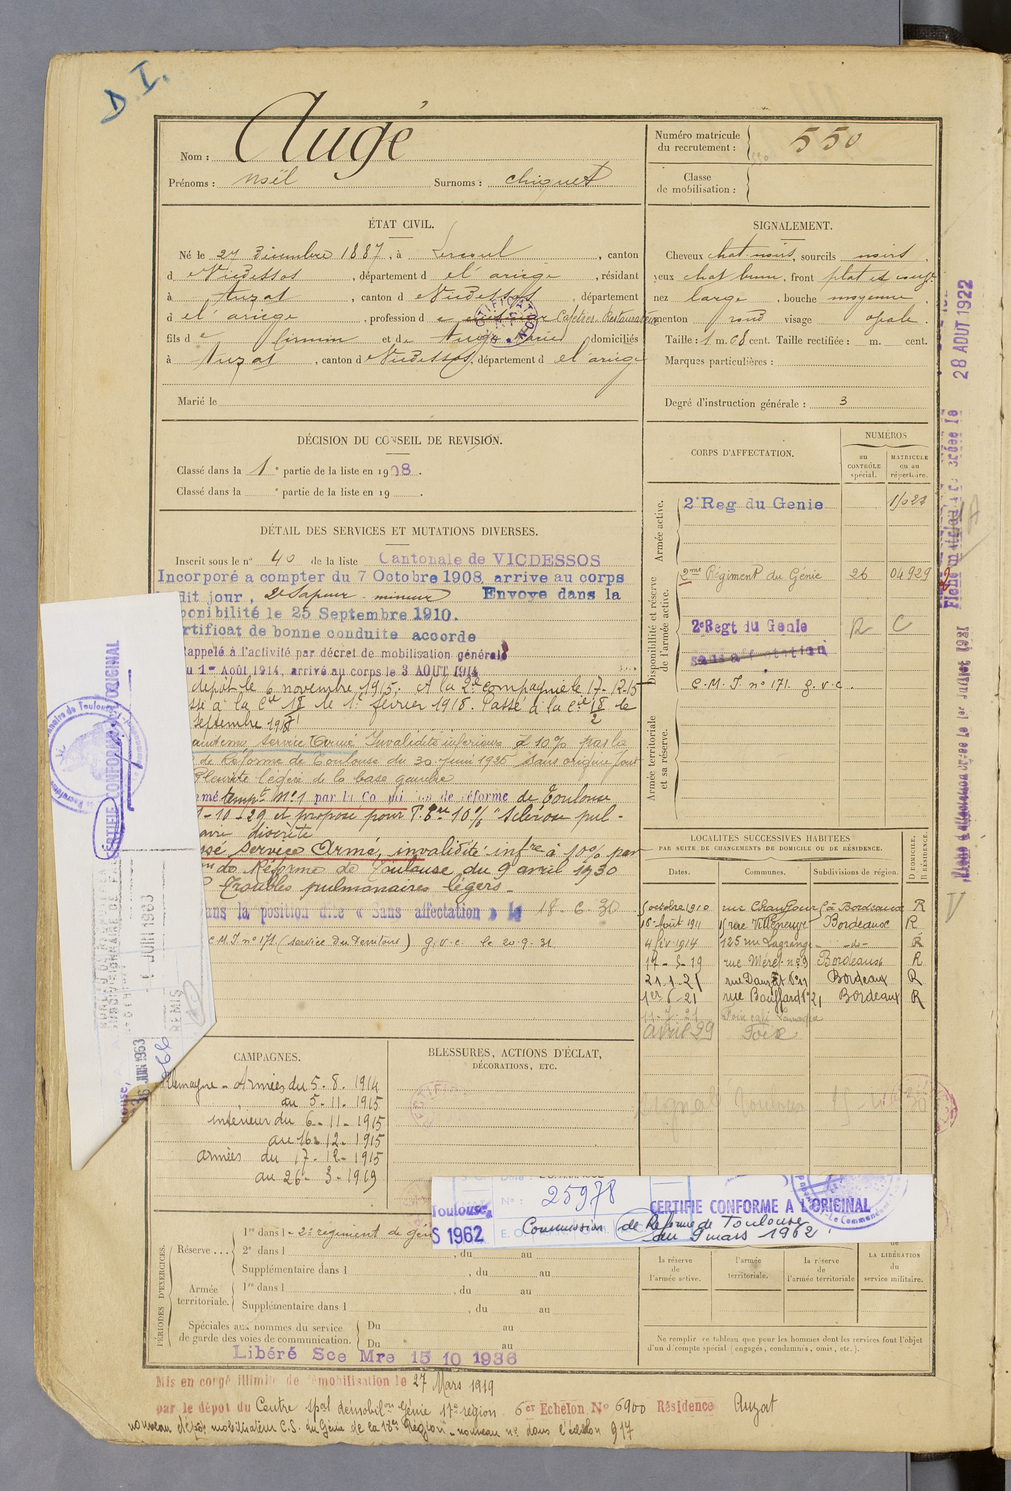 D I.
Nom : Augé
Prénoms : Noël Surnoms : chiquet
Numéro matricule du recrutement : 550
Classe de mobilisation :
ÉTAT CIVIL.
Né le 27 Décembre 1887, à Lercoul, canton
d e Vicdessos, département d e l'ariège, résidant
à Auzat, canton d e Vicdessos, département
d e l'ariège, profession d e Cafetier-Restaurateur
fils d e firmin et de Augé domiciliés
à Auzat, canton d e Vicdessos, département d e l'ariège
Marié le
SIGNALEMENT.
Cheveux chat-noirs, sourcils noirs
yeux chat brun, front plat et
nez large, bouche moyenne
menton rond visage ovale.
Taille : 1 m. 68 cent. Taille rectifiée : m. cent.
Marques particulières :
Degré d'instruction générale : 3
DÉCISION DU CONSEIL DE REVISION.
Classé dans la 1e partie de la liste en 1908.
Classé dans la e partie de la liste en 19 .
CORPS D'AFFECTATION.
NUMÉROS
au CONTRÔLE spécial.
MATRICULE ou au répertoire.
Armée active.
2e Reg du Genie
Disponibilité et réserve de l'armée active.
2me Régiment du Génie 26 04929
2e Regt du Genie R C
sans affectation
C.M.I n° 171. g.v.c.
Armée territoriale et sa réserve.
DÉTAIL DES SERVICES ET MUTATIONS DIVERSES.
Inscrit sous le n° 40 de la liste Cantonale de VICDESSOS
Incorporé a compter du 7 Octobre 1908, arrive au corps
dit jour, 2e Sapeur-mineur Envoye dans la
ponibilité le 25 Septembre 1910.
rtificat de bonne conduite accorde
Rappelé à l'activité par décret de mobilisation générale
u 1er Août 1914, arrivé au corps le 3 AOUT 1914
depôt le 6 novembre 1915. A la 2e compagnie le 17-12-15
sé à la Cie 18 le 1er février 1918. Passé à la Cie 18/2 le
septembre 1918
service armé Invalidité inférieure à 10% par la
de Réforme de Toulouse du 30 juin 1926 sans origine pour
Pleurite légère de la base gauche
rmé tempre N°1 par la Commission de réforme de Toulouse
1-10-29 et proposé pour P. tre 10% "Sclérose pul-
discrète
sé service Armé, invalidité infre à 10% par
on de Réforme de Toulouse du 9 avril 1930
Troubles pulmonaires légers-
ans la position dite « Sans affectation » le 18-6-30
C.M.I n° 171 (service du Territoire) g.v.c. le 20.9.31
LOCALITÉS SUCCESSIVES HABITÉES
PAR SUITE DE CHANGEMENTS DE DOMICILE OU DE RÉSIDENCE.
Dates. Communes. Subdivisions de région. D DOMICILE. R RÉSIDENCE.
5 octobre 1910 rue à Bordeaux R
16 Août 1911 rue Villeneuve Bordeaux R
1914 125 rue Lagrange -do- R
17-5-19 rue Mérel n° 9 Bordeaux R
21-1-21 Bordeaux R
1er 6-21 rue Bouffard n° 21 Bordeaux R
11-7-21 Foix café
Avril 29 Foix
CAMPAGNES.
llemagne - Armées du 5-8-1914
au 5-11-1915
intérieur du 6-11-1915
au 16-12-1915
armées du 17-12-1915
au 26-3-1919
BLESSURES, ACTIONS D'ÉCLAT,
DÉCORATIONS, ETC.
Toulouse
S 1962
N° : 25978
CERTIFIÉ CONFORME A L'ORIGINAL
Commission de Réforme de Toulouse
du 9 mars 1962
PÉRIODES D'EXERCICES.
Réserve... 1re dans l 2e régiment de gén
2e dans l , du au
Supplémentaire dans l , du au
Armée territoriale. 1re dans l , du au
Supplémentaire dans l , du au
Spéciales aux hommes du service de garde des voies de communication. Du au
Du au
Libéré Sce Mre 15 10 1936
la réserve de l'armée active.
l'armée territoriale.
la réserve de l'armée territoriale
de LA LIBÉRATION du service militaire.
Ne remplir ce tableau que pour les hommes dont les services font l'objet
d'un décompte spécial (engagés, condamnés, omis, etc.).
Mis en congé illimité de démobilisation le 27 Mars 1919
par le dépôt du Centre spal démobilon Génie 17e région 6er Echelon N° 6900 Résidence Auzat
nouveau dépôt mobilisateur C.S. du Génie de la 18e Région - nouveau n° dans l'échelon 917
28 AOUT 1922
CERTIFIÉ CONFORME A L'ORIGINAL
JUIN 1963
REMIS